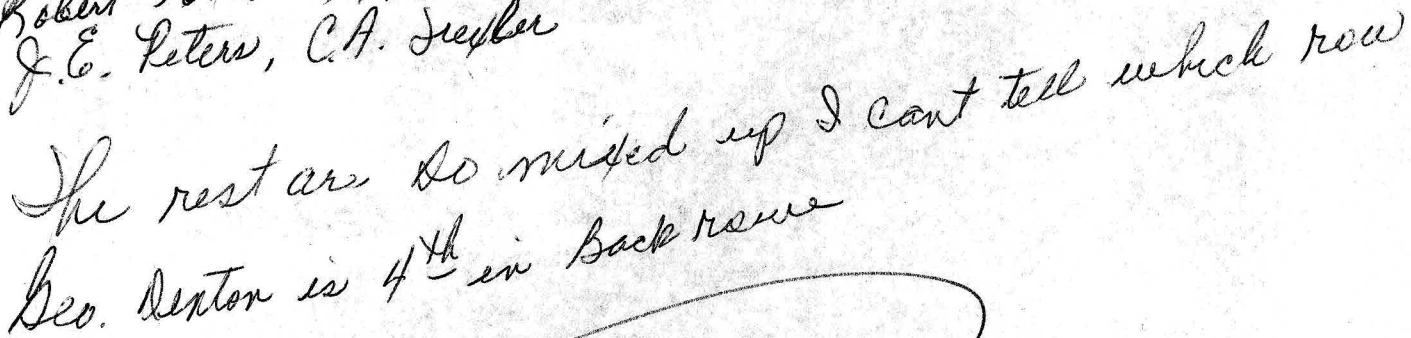 Robert
J.E. Peters, C.A. Trexler
The rest are so mixed up I cant tell which row
Geo. Denton is 4th in Back rowe